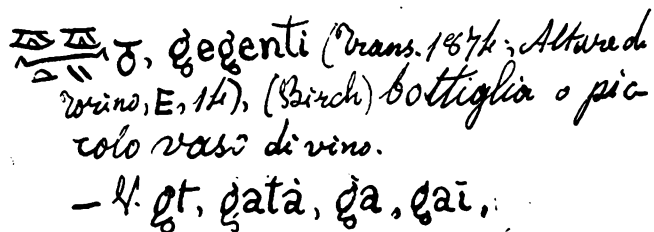 , gegenti (Trans. 1874; Altare di
Torino, E, 14), (Birch) bottiglia o pic-
colo vaso di vino.
— V. gt, gatà, ga, gaī,